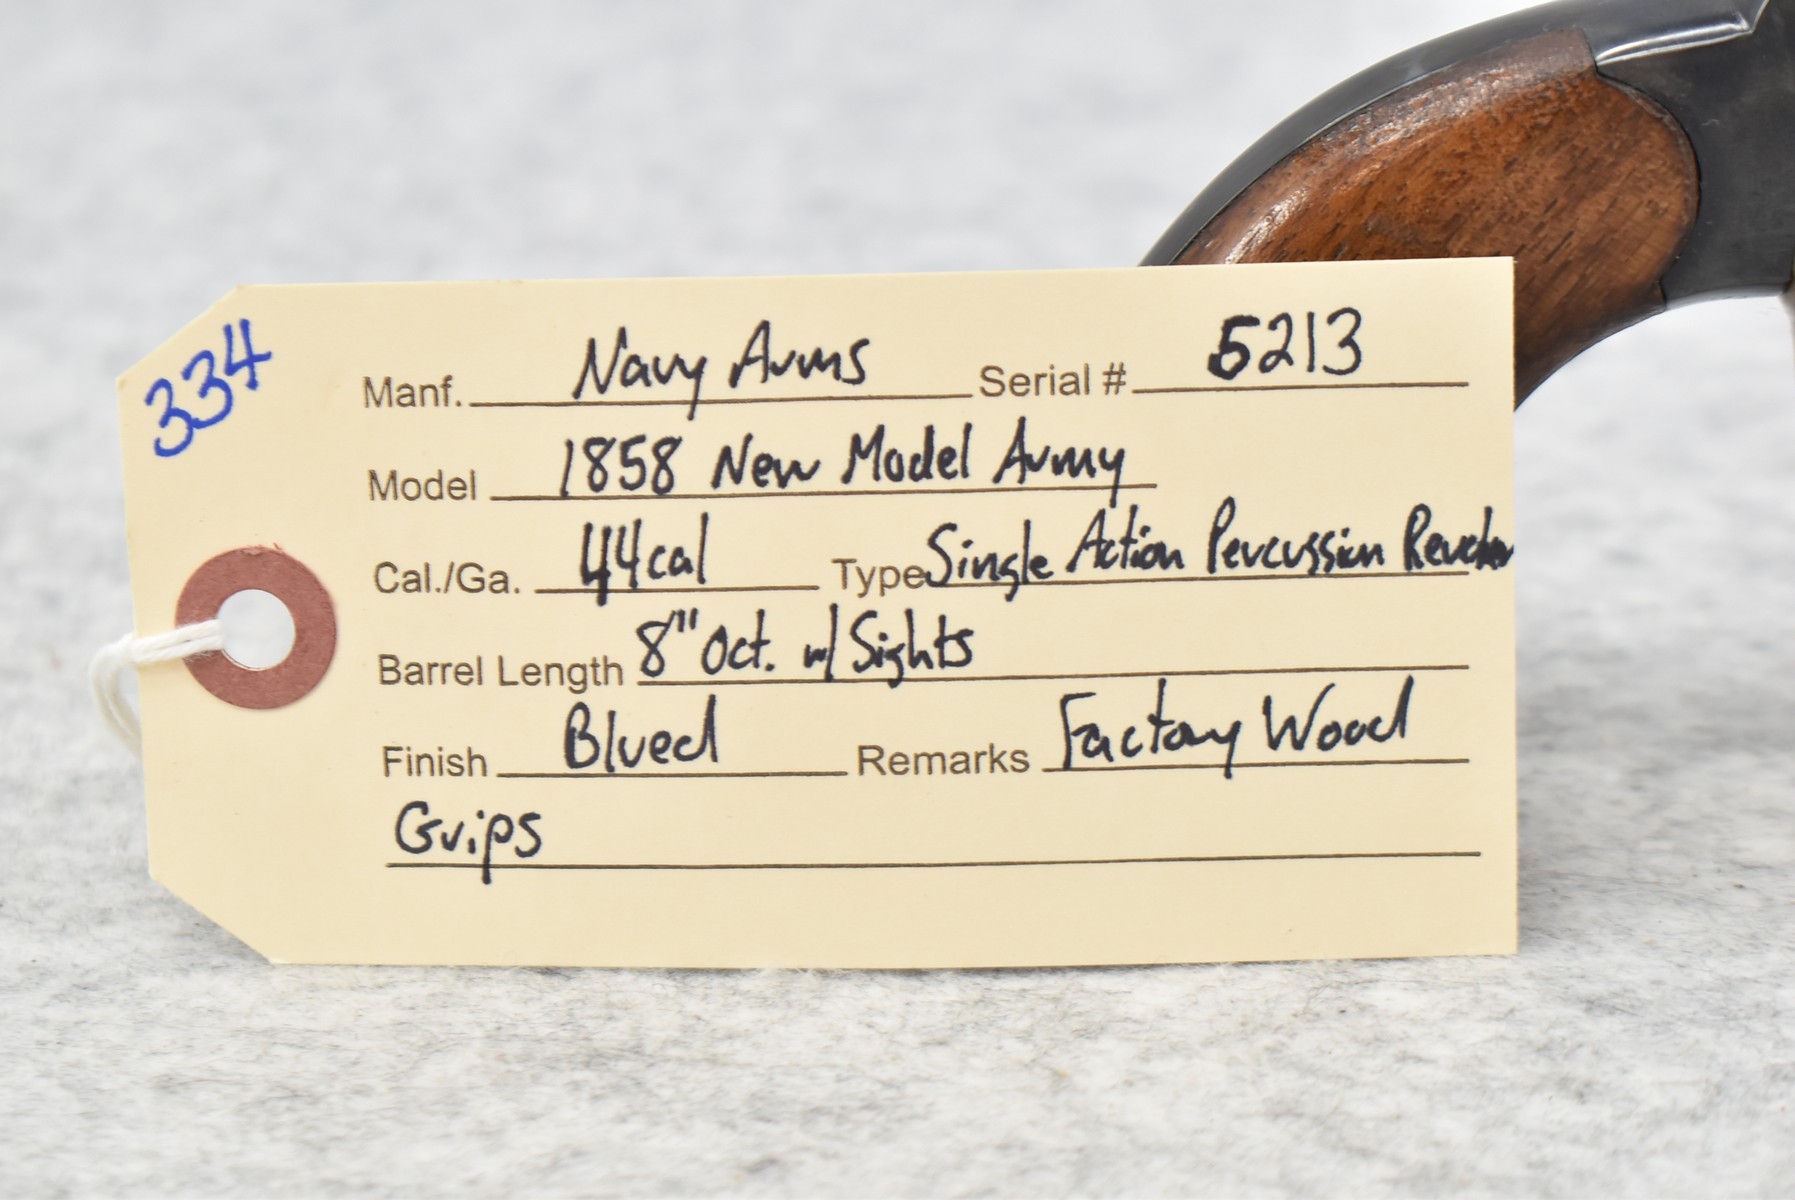 334
Manf. Navy Arms Serial # 5213
Model 1858 New Model Army
Cal./Ga. 44cal Type Single Action Percussion Revolver
Barrel Length 8" Oct. w/ Sights
Finish Blued Remarks Factory Wood
Grips